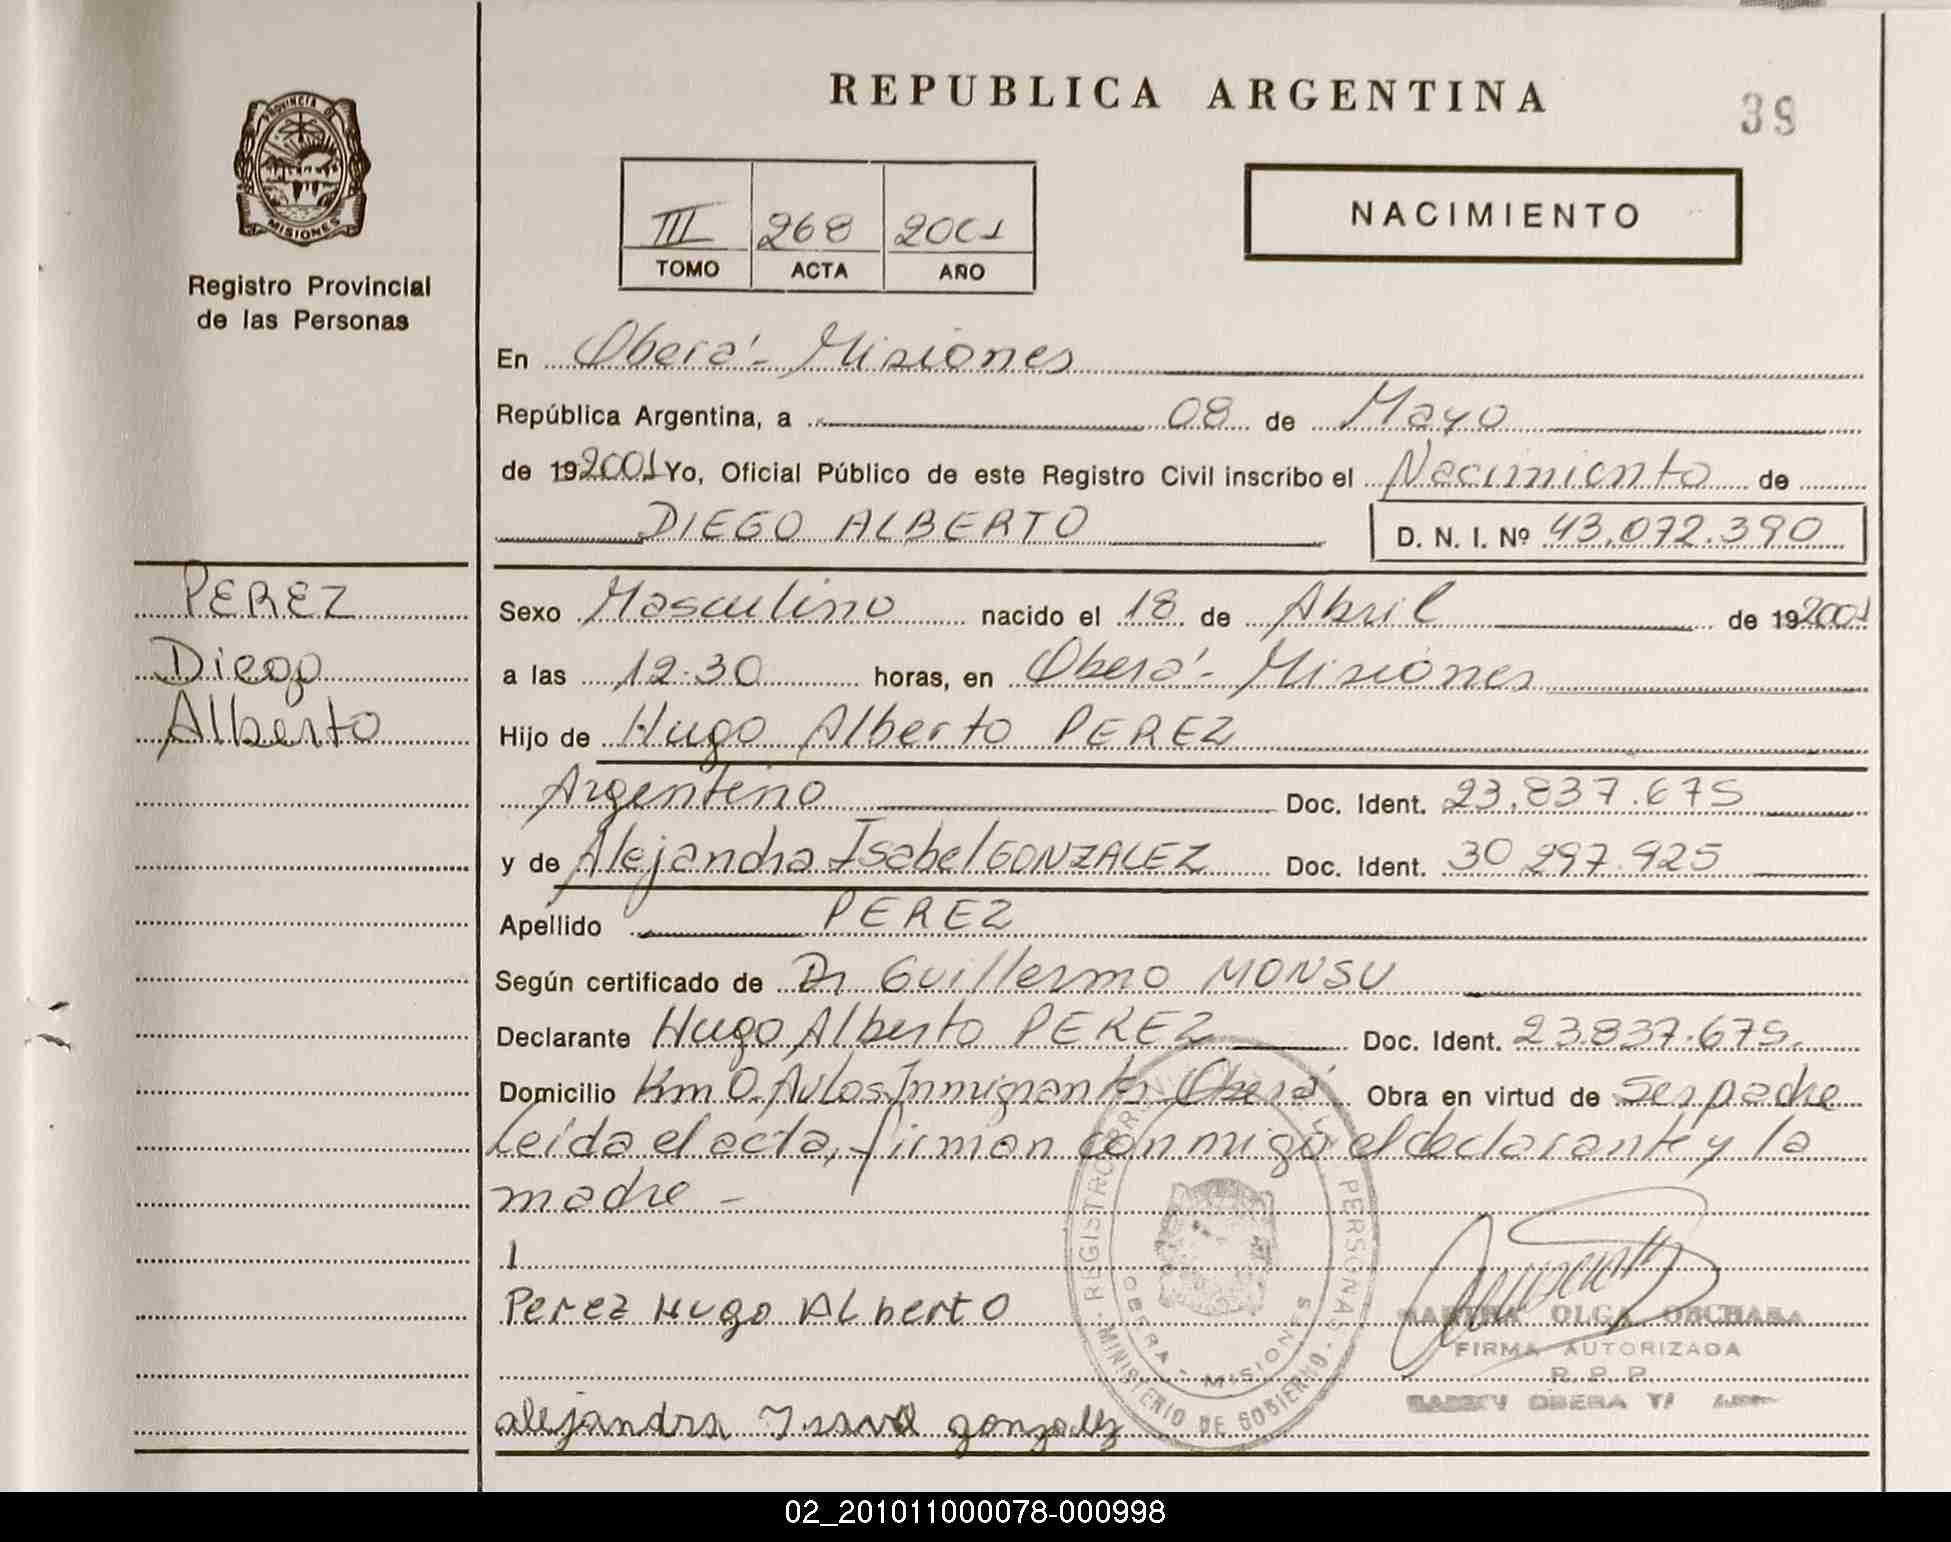 PROVINCIA DE
MISIONES
Registro Provincial
de las Personas
PEREZ
Diego
Alberto
REPUBLICA ARGENTINA
39
III 268 2001
TOMO ACTA AÑO
NACIMIENTO
En Oberá - Misiones
República Argentina, a 08 de Mayo
de 192001 Yo, Oficial Público de este Registro Civil inscribo el Nacimiento de
DIEGO ALBERTO D. N. I. Nº 43.072.390
Sexo Masculino nacido el 18 de Abril de 192001
a las 12.30 horas, en Oberá - Misiones
Hijo de Hugo Alberto PEREZ
Argentino Doc. Ident. 23.837.675
y de Alejandra Isabel GONZALEZ Doc. Ident. 30 297.925
Apellido PEREZ
Según certificado de Dr Guillermo MONSU
Declarante Hugo Alberto PEREZ Doc. Ident. 23.837.675.
Domicilio Km 0. Av Los Inmigrantes Oberá Obra en virtud de Ser padre
Leída el acta, firman conmigo el declarante y la
madre -
Perez Hugo Alberto
alejandra gonzalez
REGISTRO PERSONAS
MINISTERIO DE GOBIERNO
OBERA - MISIONES
MARTHA OLGA
FIRMA AUTORIZADA
R. P. P.
OBERA
02_201011000078-000998